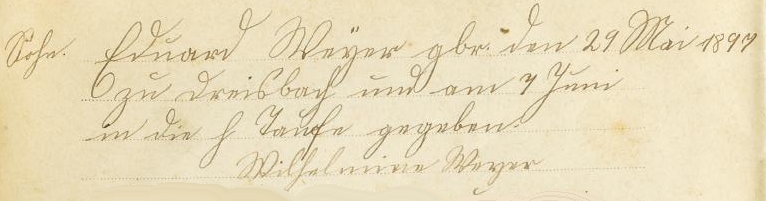 Sohn. Eduard Weyer gbr. den 29 Mai 1897
zu Dreisbach und am 7 Juni
in die h Taufe gegeben.
Wilhelmine Weyer